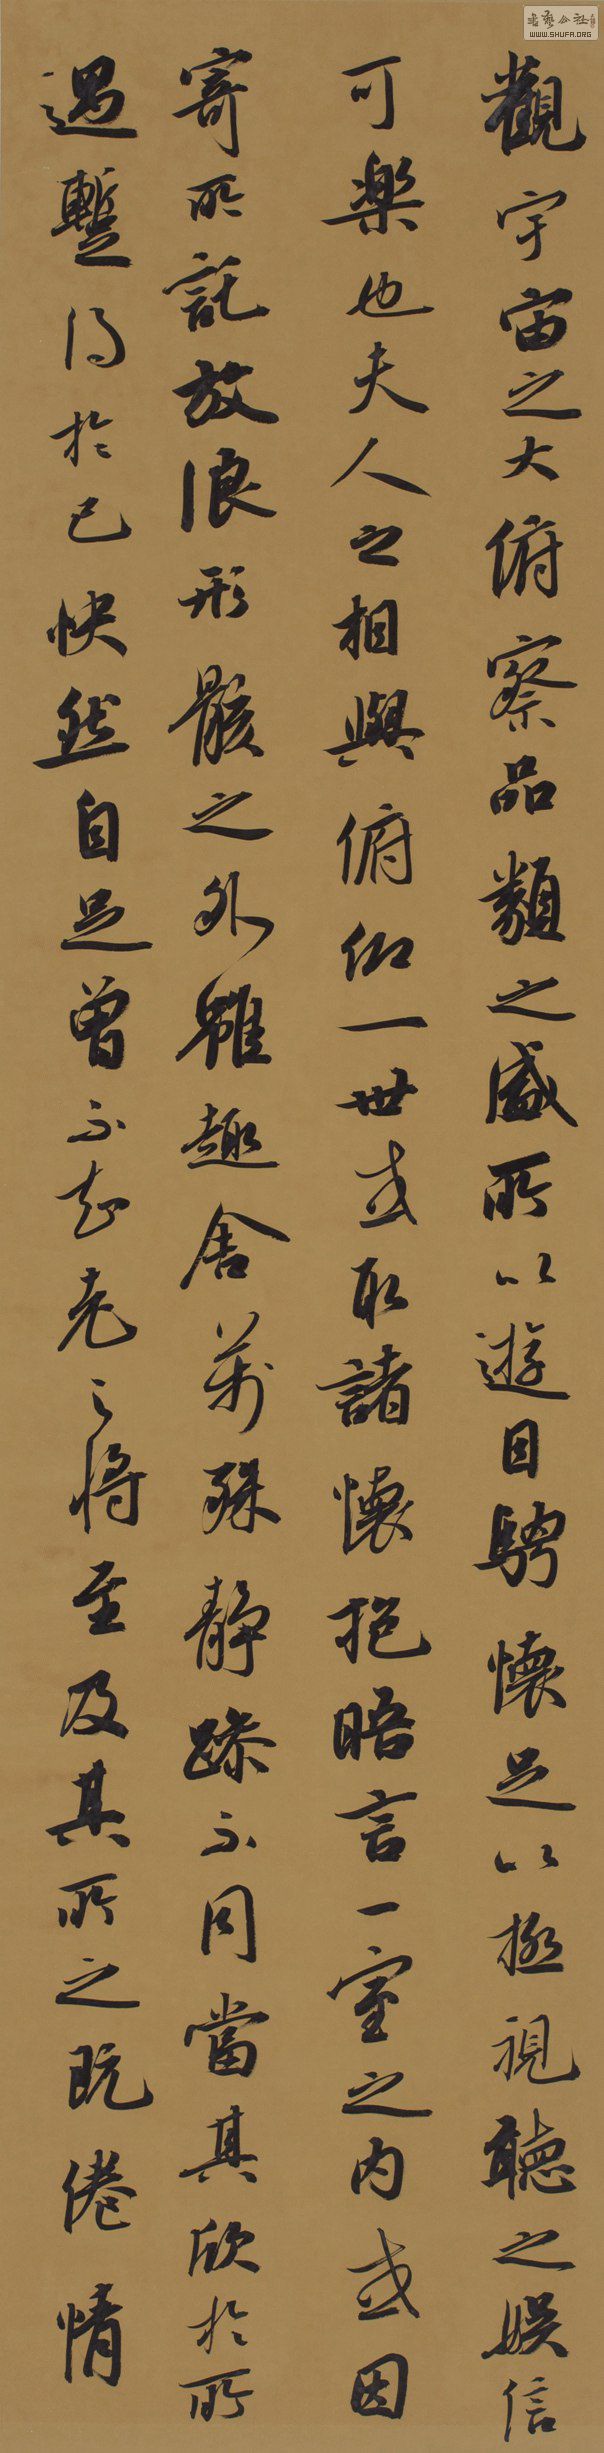 觀宇宙之大俯察品類之盛所以遊目騁懷足以極視聽之娛信
可樂也夫人之相與俯仰一世或取諸懷抱晤言一室之內或因
寄所託放浪形骸之外雖趣舍萬殊靜躁不同當其欣於所
遇暫得於己快然自足曾不知老之將至及其所之既倦情
書藝公社
WWW.SHUFA.ORG